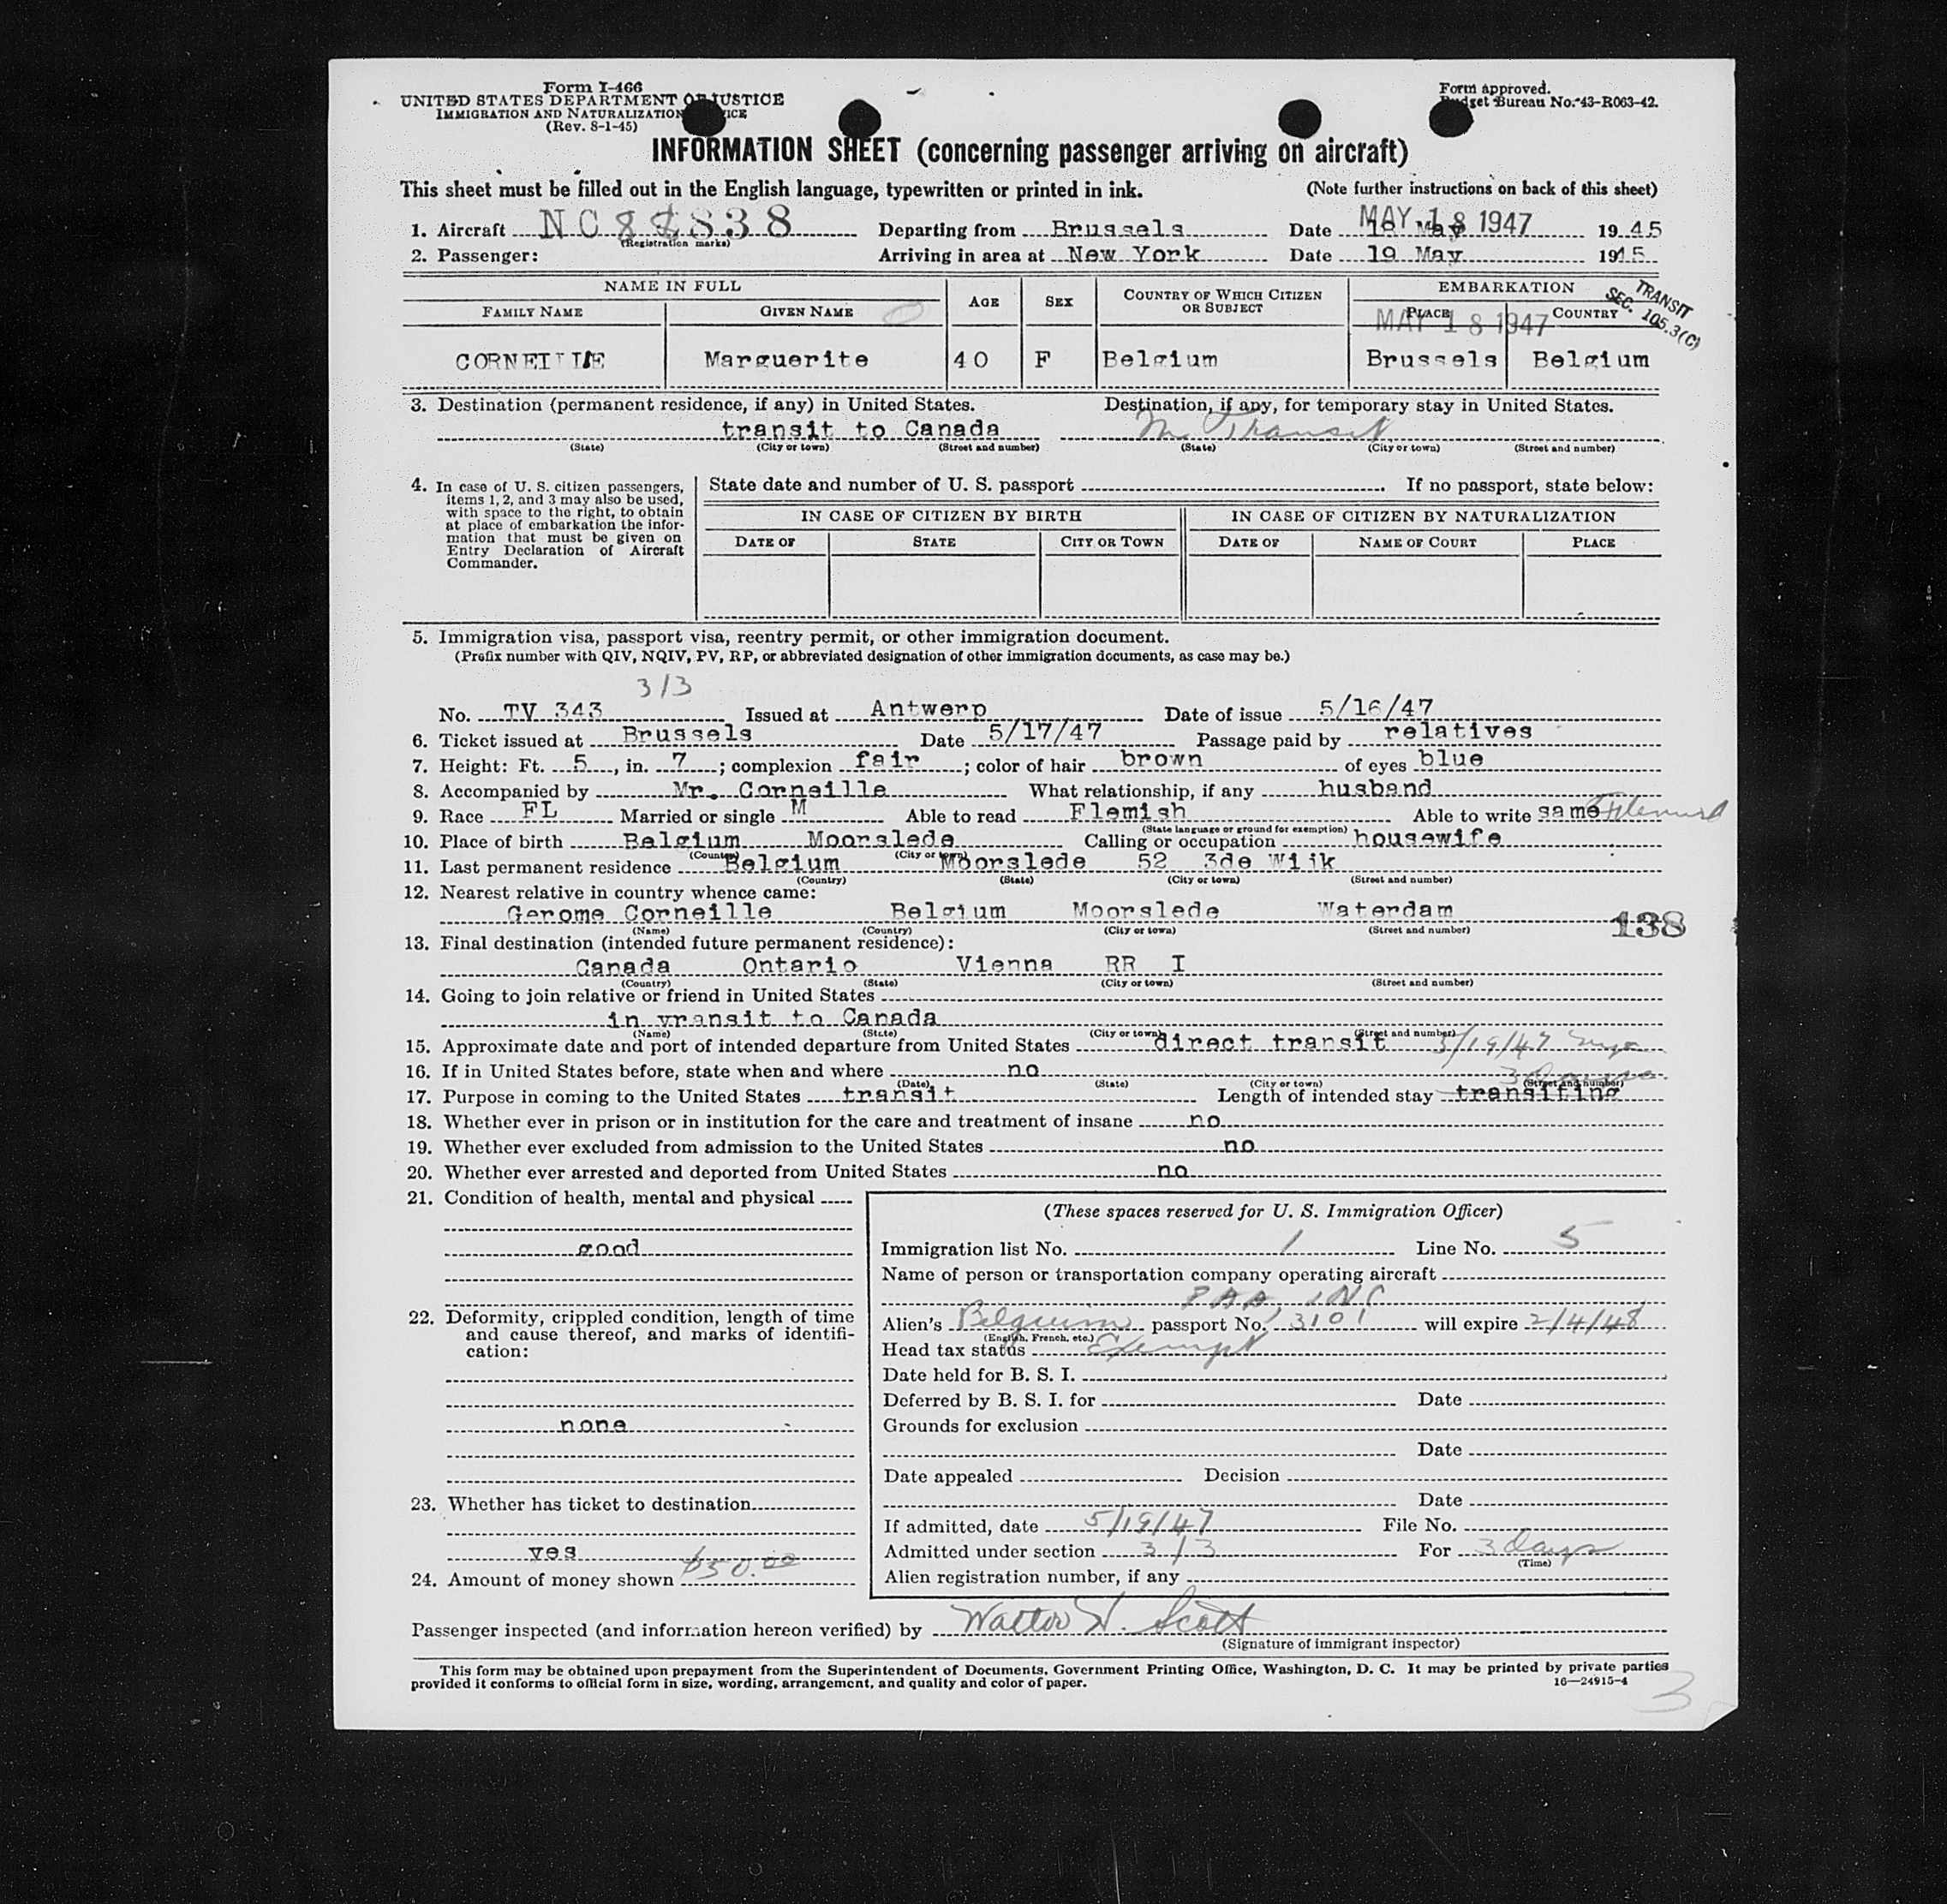 Form I-466
UNITED STATES DEPARTMENT OF JUSTICE
IMMIGRATION AND NATURALIZATION
(Rev. 8-1-45)
Form approved.
Budget Bureau No. 43-R063-42.
INFORMATION SHEET (concerning passenger arriving on aircraft)
This sheet must be filled out in the English language, typewritten or printed in ink. (Note further instructions on back of this sheet)
1. Aircraft NC88838 Departing from Brussels Date MAY 18 1947 1945
(Registration marks)
2. Passenger: Arriving in area at New York Date 19 May 1945
NAME IN FULL AGE SEX COUNTRY OF WHICH CITIZEN OR SUBJECT EMBARKATION
TRANSIT SEC. 105.3(C)
FAMILY NAME GIVEN NAME PLACE COUNTRY
MAY 18 1947
CORNEILLE Marguerite 40 F Belgium Brussels Belgium
3. Destination (permanent residence, if any) in United States. Destination, if any, for temporary stay in United States.
transit to Canada In Transit
(State) (City or town) (Street and number) (State) (City or town) (Street and number)
4. In case of U. S. citizen passengers, items 1, 2, and 3 may also be used, with space to the right, to obtain at place of embarkation the information that must be given on Entry Declaration of Aircraft Commander.
State date and number of U. S. passport If no passport, state below:
IN CASE OF CITIZEN BY BIRTH IN CASE OF CITIZEN BY NATURALIZATION
DATE OF STATE CITY OR TOWN DATE OF NAME OF COURT PLACE
5. Immigration visa, passport visa, reentry permit, or other immigration document.
(Prefix number with QIV, NQIV, PV, RP, or abbreviated designation of other immigration documents, as case may be.)
3/3
No. TV 343 Issued at Antwerp Date of issue 5/16/47
6. Ticket issued at Brussels Date 5/17/47 Passage paid by relatives
7. Height: Ft. 5, in. 7; complexion fair; color of hair brown of eyes blue
8. Accompanied by Mr. Corneille What relationship, if any husband
9. Race FL Married or single M Able to read Flemish Able to write same Flemish
(State language or ground for exemption)
10. Place of birth Belgium Moorslede Calling or occupation housewife
(Country) (City or town)
11. Last permanent residence Belgium Moorslede 52 3de Wijk
(Country) (State) (City or town) (Street and number)
12. Nearest relative in country whence came:
Gerome Corneille Belgium Moorslede Waterdam
138
(Name) (Country) (City or town) (Street and number)
13. Final destination (intended future permanent residence):
Canada Ontario Vienna RR I
(Country) (State) (City or town) (Street and number)
14. Going to join relative or friend in United States
in vransit to Canada
(Name) (State) (City or town) (Street and number)
15. Approximate date and port of intended departure from United States direct transit 5/19/47
16. If in United States before, state when and where no
(Date) (State) (City or town) (Street and number)
3 days
17. Purpose in coming to the United States transit Length of intended stay transiting
18. Whether ever in prison or in institution for the care and treatment of insane no
19. Whether ever excluded from admission to the United States no
20. Whether ever arrested and deported from United States no
21. Condition of health, mental and physical
good
22. Deformity, crippled condition, length of time and cause thereof, and marks of identification:
none
23. Whether has ticket to destination
yes
24. Amount of money shown $50.00
(These spaces reserved for U. S. Immigration Officer)
Immigration list No. 1 Line No. 5
Name of person or transportation company operating aircraft
PAA, INC
Alien's Belgium passport No. 3101 will expire 2/4/48
(English, French, etc.)
Head tax status Exempt
Date held for B. S. I.
Deferred by B. S. I. for Date
Grounds for exclusion
Date
Date appealed Decision
Date
If admitted, date 5/19/47 File No.
Admitted under section 3/3 For 3 days
(Time)
Alien registration number, if any
Passenger inspected (and information hereon verified) by Walter H. Scott
(Signature of immigrant inspector)
This form may be obtained upon prepayment from the Superintendent of Documents, Government Printing Office, Washington, D. C. It may be printed by private parties
provided it conforms to official form in size, wording, arrangement, and quality and color of paper. 16—24915-4
3